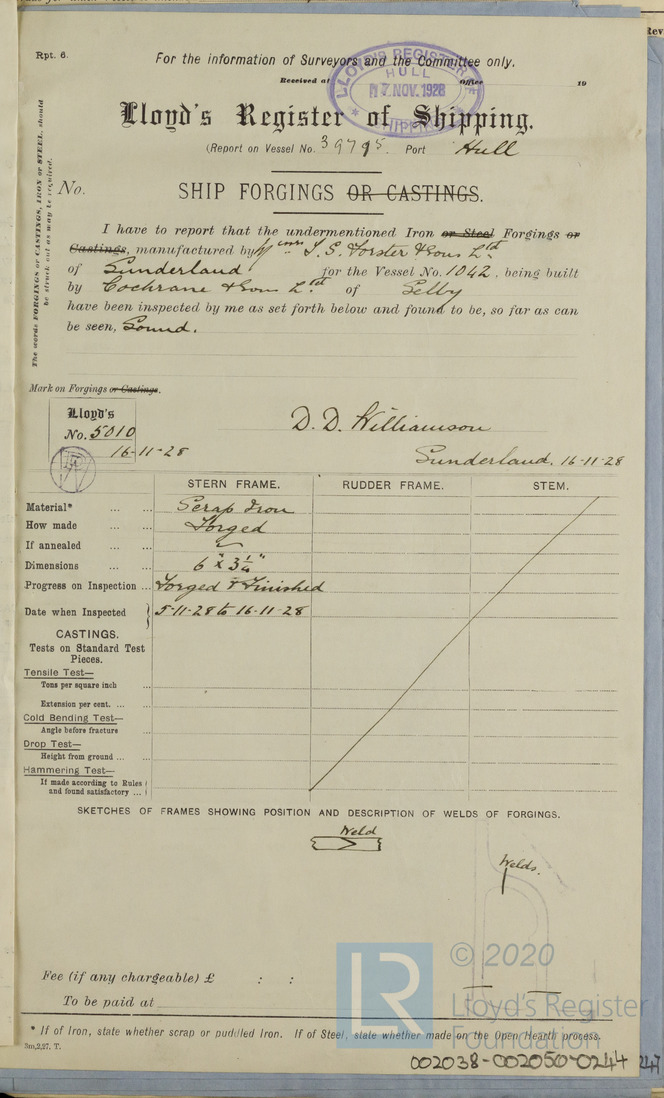 Rpt. 6.
For the information of Surveyors and the Committee only.
Received at Office 19
LLOYD'S REGISTER OF SHIPPING
HULL
17 NOV. 1928
Lloyd's Register of Shipping.
(Report on Vessel No. 39795. Port Hull
The words FORGINGS or CASTINGS, IRON or STEEL, should be struck out as may be required.
No. SHIP FORGINGS OR CASTINGS.
I have to report that the undermentioned Iron or Steel Forgings or
Castings, manufactured by Messrs T. S. Forster & Sons Ltd
of Sunderland for the Vessel No. 1042, being built
by Cochrane & Sons Ltd of Selby
have been inspected by me as set forth below and found to be, so far as can
be seen, Sound.
Mark on Forgings or Castings.
Lloyd's
No. 5010
16-11-28
D. D. Williamson
Sunderland. 16-11-28
STERN FRAME. RUDDER FRAME. STEM.
Material* ... ... Scrap Iron
How made ... ... Forged
If annealed ... ...
Dimensions ... ... 6" x 3¼"
Progress on Inspection ... Forged & Finished
Date when Inspected 5-11-28 to 16-11-28
CASTINGS.
Tests on Standard Test
Pieces.
Tensile Test—
Tons per square inch ...
Extension per cent. ... ...
Cold Bending Test—
Angle before fracture ...
Drop Test—
Height from ground ... ...
Hammering Test—
If made according to Rules
and found satisfactory ...
SKETCHES OF FRAMES SHOWING POSITION AND DESCRIPTION OF WELDS OF FORGINGS.
Weld
Welds.
Fee (if any chargeable) £ : :
To be paid at
© 2020
LR
Lloyd's Register
Foundation
* If of Iron, state whether scrap or puddled Iron. If of Steel, state whether made on the Open Hearth process.
3m,2,27. T.
002038-002050-0244
247